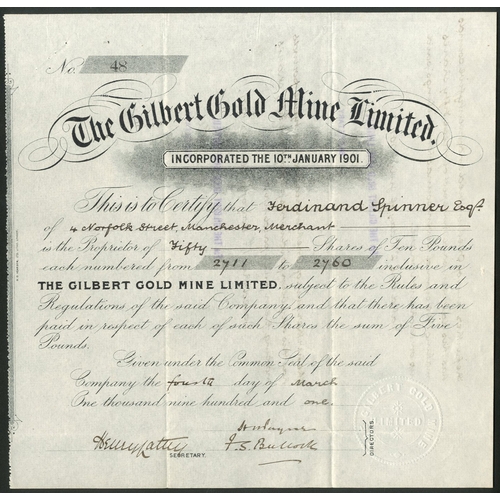 No. 48
The Gilbert Gold Mine Limited.
INCORPORATED THE 10TH JANUARY 1901.
This is to Certify that Ferdinand Spinner Esqr.
of 4 Norfolk Street, Manchester, Merchant
is the Proprietor of Fifty Shares of Ten Pounds
each numbered from 2711 to 2760 inclusive in
THE GILBERT GOLD MINE LIMITED, subject to the Rules and
Regulations of the said Company, and that there has been
paid in respect of each of such Shares the sum of Five
Pounds.
Given under the Common Seal of the said
Company the fourth day of March
One thousand nine hundred and one.
SECRETARY.
F. S. Bullock
DIRECTORS.
GILBERT GOLD MINE
LIMITED